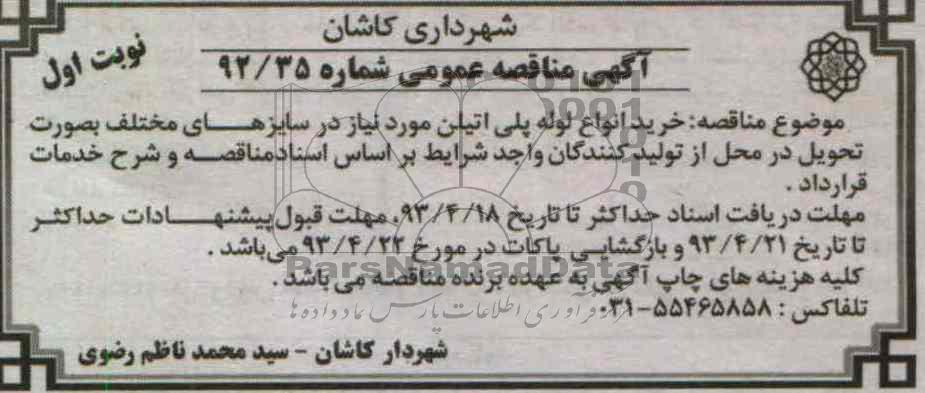 شهرداری کاشان
نوبت اول
آگهی مناقصه عمومی شماره ۹۲/۳۵
موضوع مناقصه: خرید انواع لوله پلی اتیلن مورد نیاز در سایزهای مختلف بصورت
تحویل در محل از تولیدکنندگان واجد شرایط بر اساس اسنادمناقصه و شرح خدمات
قرارداد .
مهلت دریافت اسناد حداکثر تا تاریخ ۹۳/۴/۱۸، مهلت قبول پیشنهادات حداکثر
تا تاریخ ۹۳/۴/۲۱ و بازگشایی پاکات در مورخ ۹۳/۴/۲۲ می‌باشد .
کلیه هزینه های چاپ آگهی به عهده برنده مناقصه می باشد .
تلفاکس : ۵۵۴۶۵۸۵۸-۰۳۱
شهردار کاشان - سید محمد ناظم رضوی
ParsNamadData
فرآوری اطلاعات پارس نماد داده ها